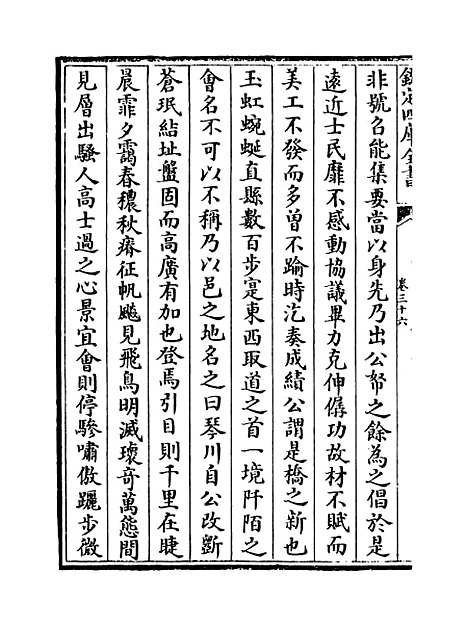 欽定四庫全書
卷三十六
非號召能集要當以身先乃出公帑之餘為之倡於是
遠近士民靡不感動協議畢力克伸僝功故材不賦而
美工不發而多曾不踰時汔奏成績公謂是橋之新也
玉虹蜿蜒直縣數百步寔東西取道之首一境阡陌之
會名不可以不稱乃以邑之地名之曰琴川自公改斵
蒼珉結址盤固而高廣有加也登焉引目則千里在睫
晨霏夕靄春穠秋瘠征帆飈見飛鳥明滅瓌奇萬態間
見層出騷人高士過之心景宜會則停驂嘯傲躧步微